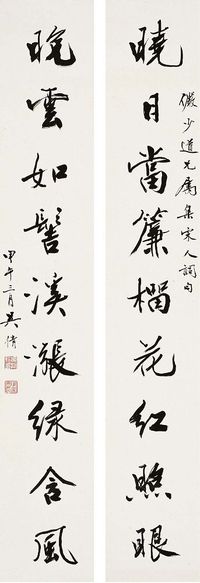 儼少道兄屬集宋人詞句
曉日當簾榴花紅照眼
晚雲如髻溪漲緑含風
甲午三月吳倩